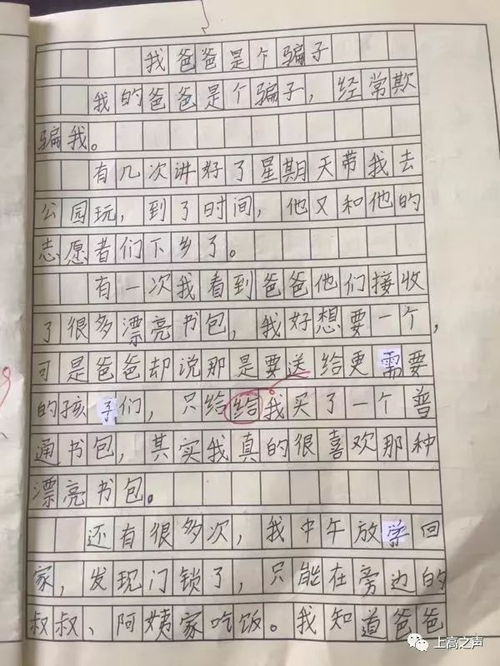 我爸爸是个骗子
我的爸爸是个骗子，经常欺
骗我。
有几次讲好了星期天带我去
公园玩，到了时间，他又和他的
志愿者们下乡了。
有一次我看到爸爸他们接收
了很多漂亮书包，我好想要一个，
可是爸爸却说那是要送给更需要
的孩子们，只给给我买了一个普
通书包，其实我真的很喜欢那种
漂亮书包。
还有很多次，我中午放学回
家，发现门锁了，只能在旁边的
叔叔、阿姨家吃饭。我知道爸爸
上高之声